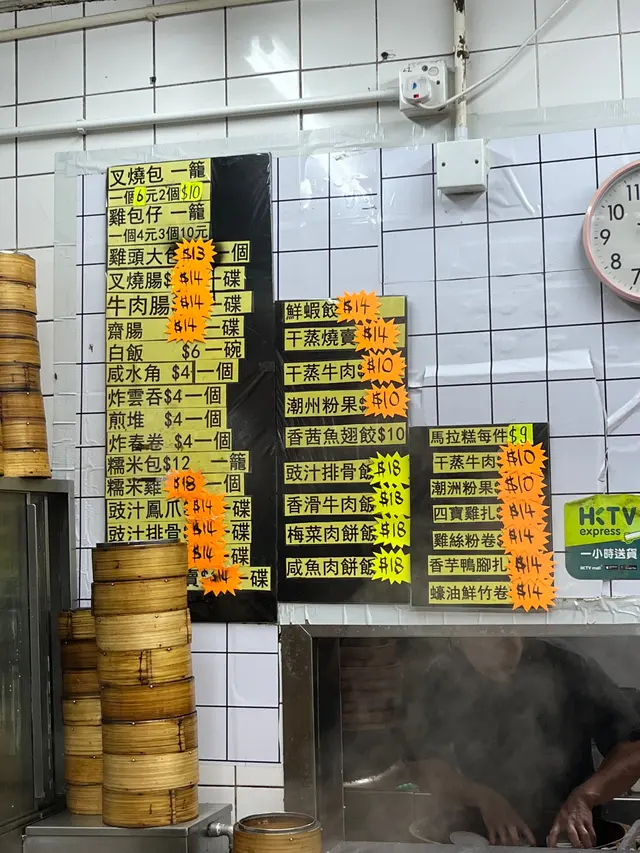 叉燒包 一籠
一個6元2個$10
雞包仔 一籠
一個4元3個10元
雞頭大包 $13 一個
叉燒腸$ $14 一碟
牛肉腸 $14 一碟
齋腸 $14 一碟
白飯 $6 一碗
咸水角 $4一個
炸雲吞 $4一個
煎堆 $4一個
炸春卷 $4一個
糯米包$12 一籠
糯米雞 $18 一個
豉汁鳳爪 $14 一碟
豉汁排骨 $14 一碟
$14 一碟
$14 一碟
鮮蝦餃 $14
干蒸燒賣 $14
干蒸牛肉 $10
潮州粉果 $10
香茜魚翅餃$10
豉汁排骨飯 $18
香滑牛肉飯 $18
梅菜肉餅飯 $18
咸魚肉餅飯 $18
馬拉糕每件 $9
干蒸牛肉 $10
潮洲粉果 $10
四寶雞扎 $14
雞絲粉卷 $14
香芋鴨腳扎 $14
蠔油鮮竹卷 $14
HKTV
express
一小時送貨
HKTV mall
12
11
10
9
8
7
6